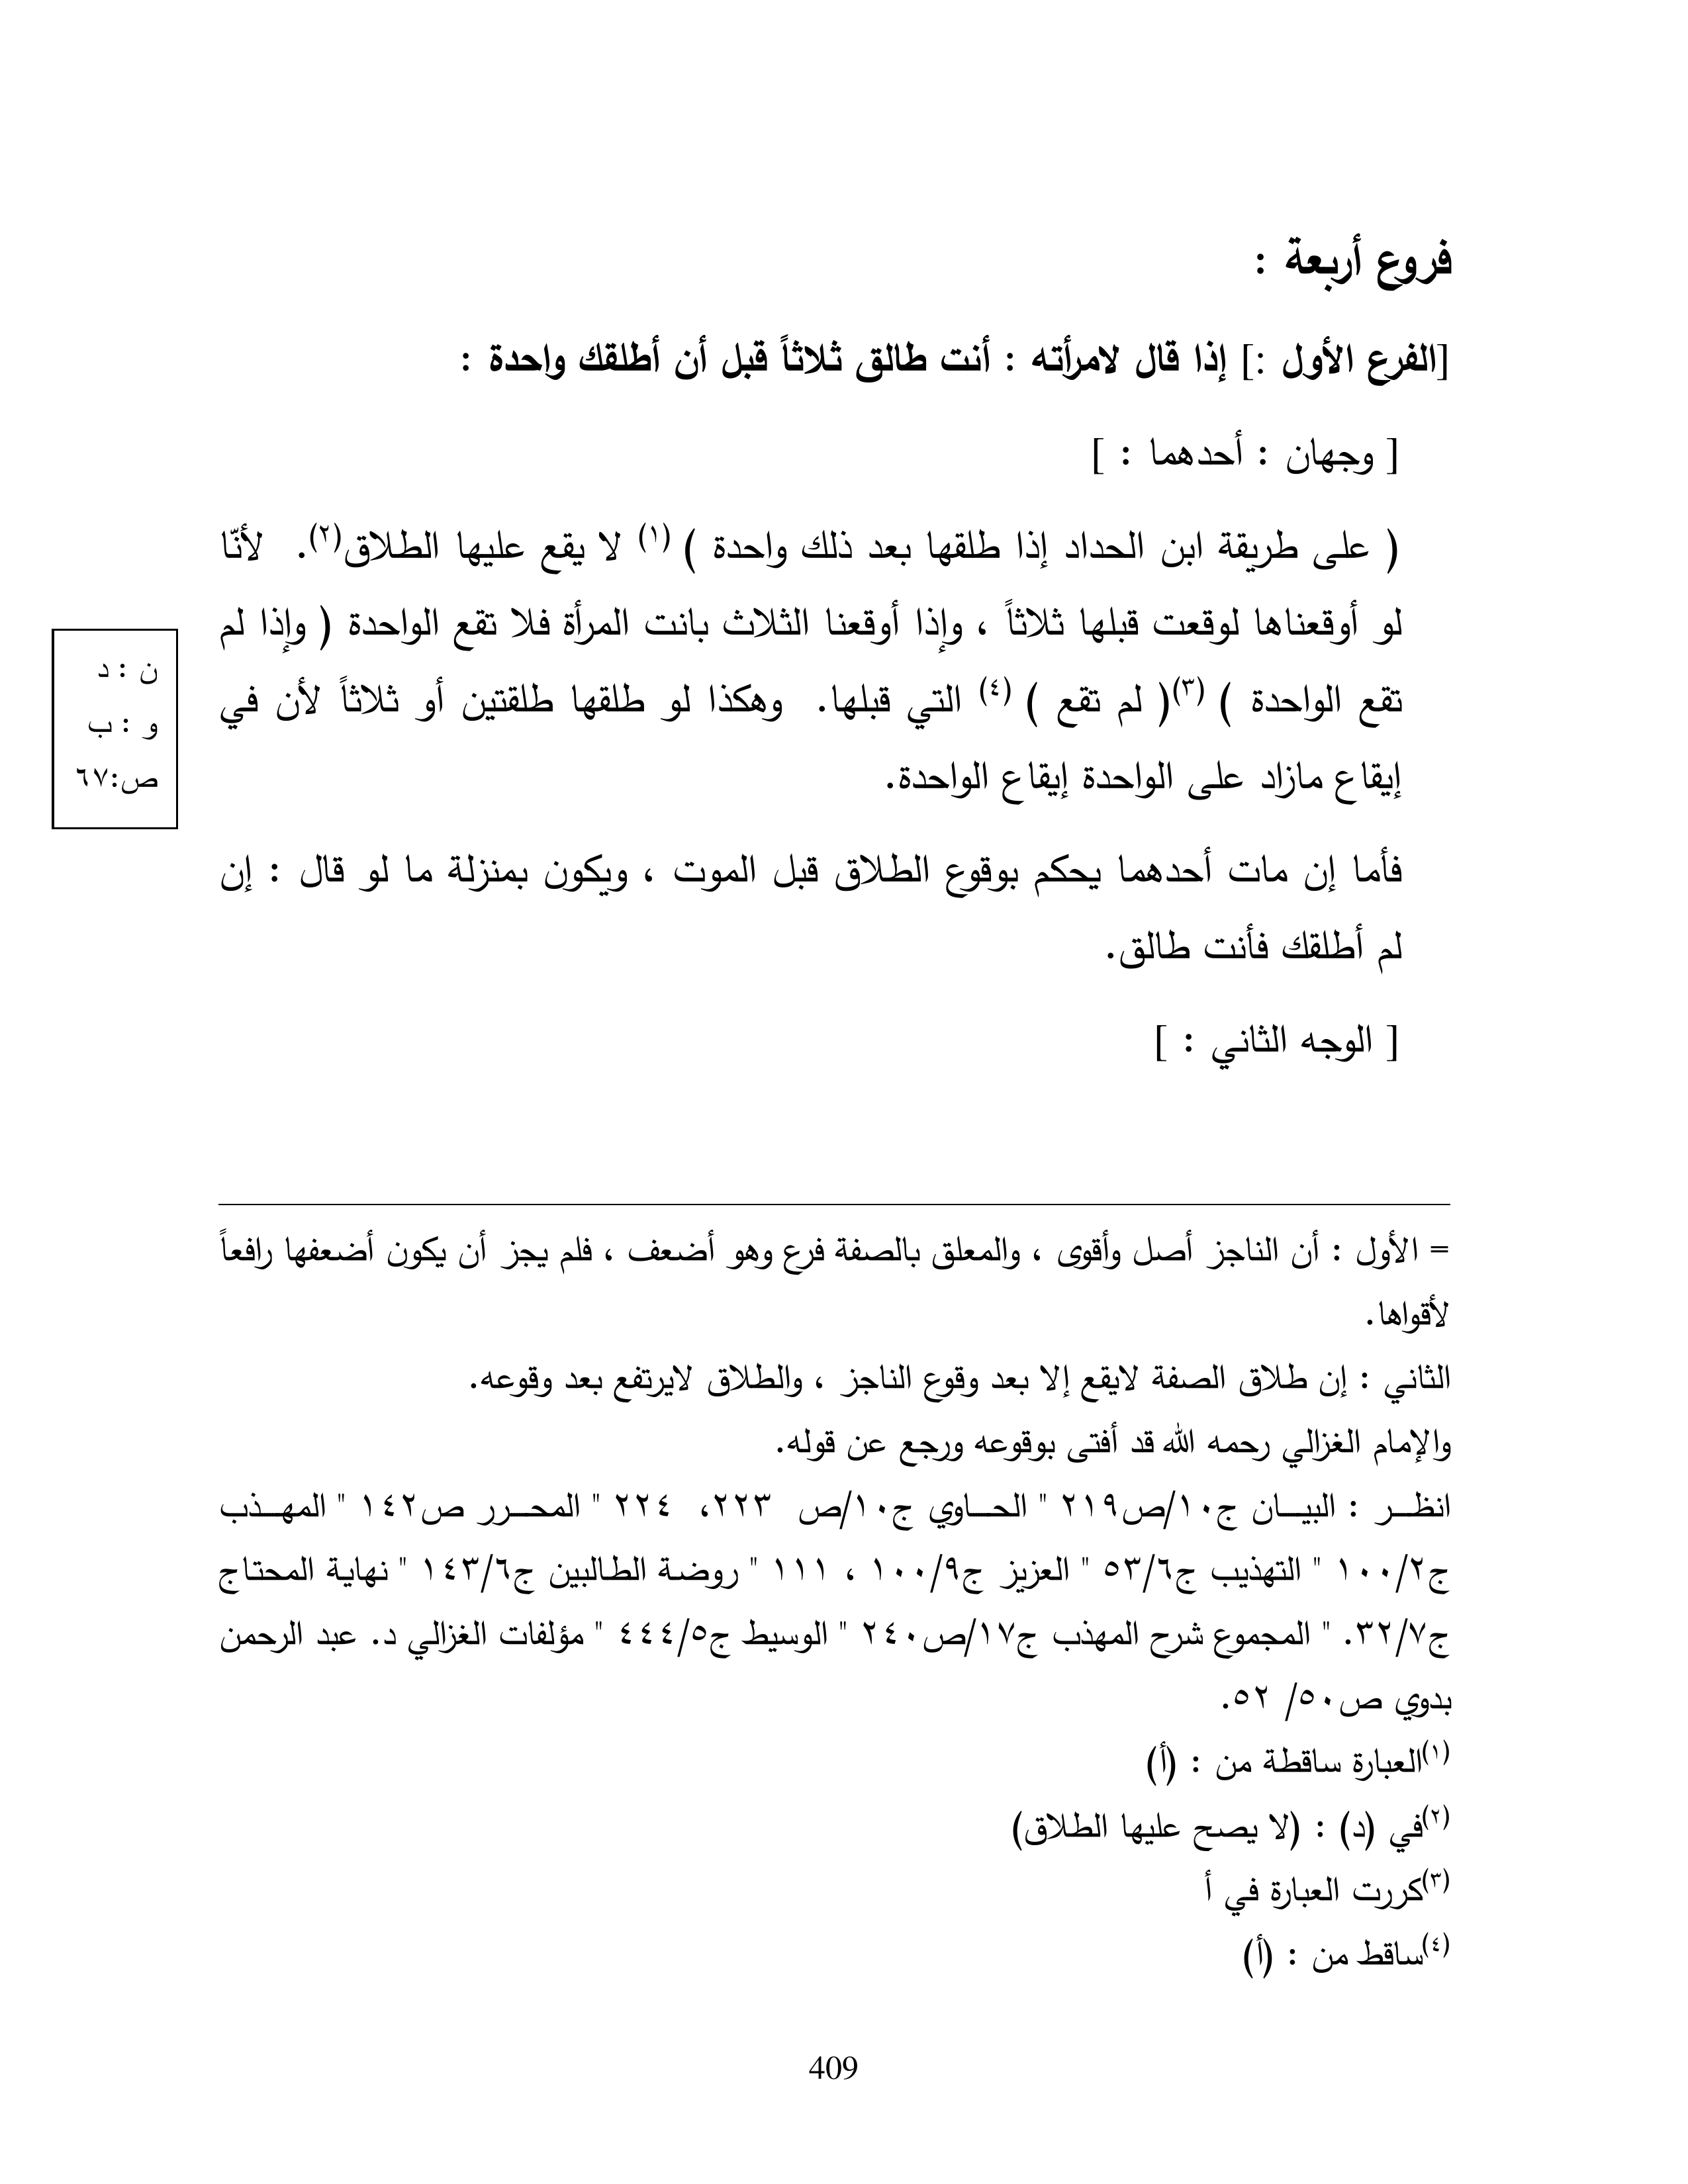 فروع أربعة :
[الفرع الأول :] إذا قال لامرأته : أنت طالق ثلاثاً قبل أن أطلقك واحدة :
[ وجهان : أحدهما : ]
( على طريقة ابن الحداد إذا طلقها بعد ذلك واحدة ) (١) لا يقع عليها الطلاق(٢). لأنّا
لو أوقعناها لوقعت قبلها ثلاثاً ، وإذا أوقعنا الثلاث بانت المرأة فلا تقع الواحدة ( وإذا لم
تقع الواحدة ) (٣)( لم تقع ) (٤) التي قبلها. وهكذا لو طلقها طلقتين أو ثلاثاً لأن في
إيقاع مازاد على الواحدة إيقاع الواحدة.
ن : د
و : ب
ص:٦٧
فأما إن مات أحدهما يحكم بوقوع الطلاق قبل الموت ، ويكون بمنزلة ما لو قال : إن
لم أطلقك فأنت طالق.
[ الوجه الثاني : ]
= الأول : أن الناجز أصل وأقوى ، والمعلق بالصفة فرع وهو أضعف ، فلم يجز أن يكون أضعفها رافعاً
لأقواها.
الثاني : إن طلاق الصفة لايقع إلا بعد وقوع الناجز ، والطلاق لايرتفع بعد وقوعه.
والإمام الغزالي رحمه الله قد أفتى بوقوعه ورجع عن قوله.
انظر : البيان ج١٠/ص٢١٩ " الحاوي ج١٠/ص ٢٢٣، ٢٢٤ " المحرر ص١٤٢ " المهذب
ج١٠٠/٢ " التهذيب ج٥٣/٦ " العزيز ج١٠٠/٩ ، ١١١ " روضة الطالبين ج١٤٣/٦ " نهاية المحتاج
ج٣٢/٧. " المجموع شرح المهذب ج١٧/ص٢٤٠ " الوسيط ج٤٤٤/٥ " مؤلفات الغزالي د. عبد الرحمن
بدوي ص٥٠/ ٥٢.
(١)العبارة ساقطة من : (أ)
(٢)في (د) : (لا يصح عليها الطلاق)
(٣)كررت العبارة في أ
(٤)ساقط من : (أ)
409